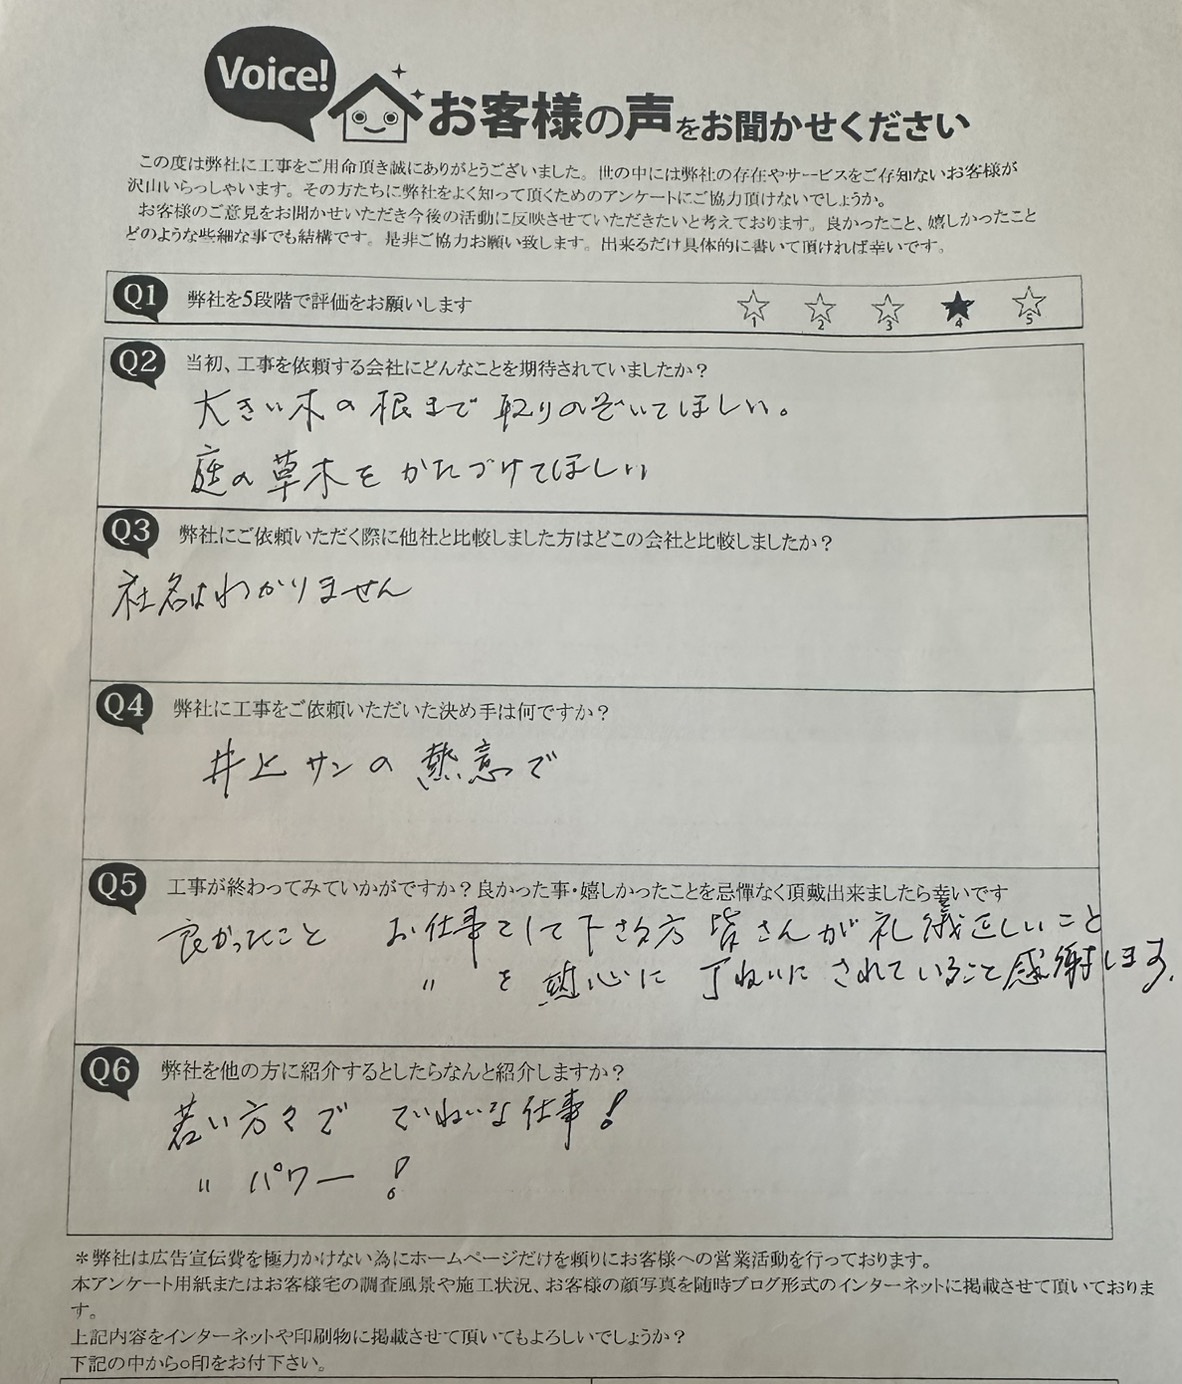 Voice!
お客様の声をお聞かせください
この度は弊社に工事をご用命頂き誠にありがとうございました。世の中には弊社の存在やサービスをご存知ないお客様が
沢山いらっしゃいます。その方たちに弊社をよく知って頂くためのアンケートにご協力頂けないでしょうか。
お客様のご意見をお聞かせいただき今後の活動に反映させていただきたいと考えております。良かったこと、嬉しかったこと
どのような些細な事でも結構です。是非ご協力お願い致します。出来るだけ具体的に書いて頂ければ幸いです。
Q1 弊社を5段階で評価をお願いします ☆1 ☆2 ☆3 ★4 ☆5
Q2 当初、工事を依頼する会社にどんなことを期待されていましたか？
大きい木の根まで取りのぞいてほしい。
庭の草木をかたづけてほしい
Q3 弊社にご依頼いただく際に他社と比較しました方はどこの会社と比較しましたか？
社名はわかりません
Q4 弊社に工事をご依頼いただいた決め手は何ですか？
井上サンの熱意で
Q5 工事が終わってみていかがですか？良かった事・嬉しかったことを忌憚なく頂戴出来ましたら幸いです
良かったこと お仕事をして下さる方皆さんが礼儀正しいこと
〃 を熱心に丁ねいにされていること感謝します.
Q6 弊社を他の方に紹介するとしたらなんと紹介しますか？
若い方々で ていねいな仕事！
〃 パワー！
＊弊社は広告宣伝費を極力かけない為にホームページだけを頼りにお客様への営業活動を行っております。
本アンケート用紙またはお客様宅の調査風景や施工状況、お客様の顔写真を随時ブログ形式のインターネットに掲載させて頂いておりま
す。
上記内容をインターネットや印刷物に掲載させて頂いてもよろしいでしょうか？
下記の中から○印をお付下さい。